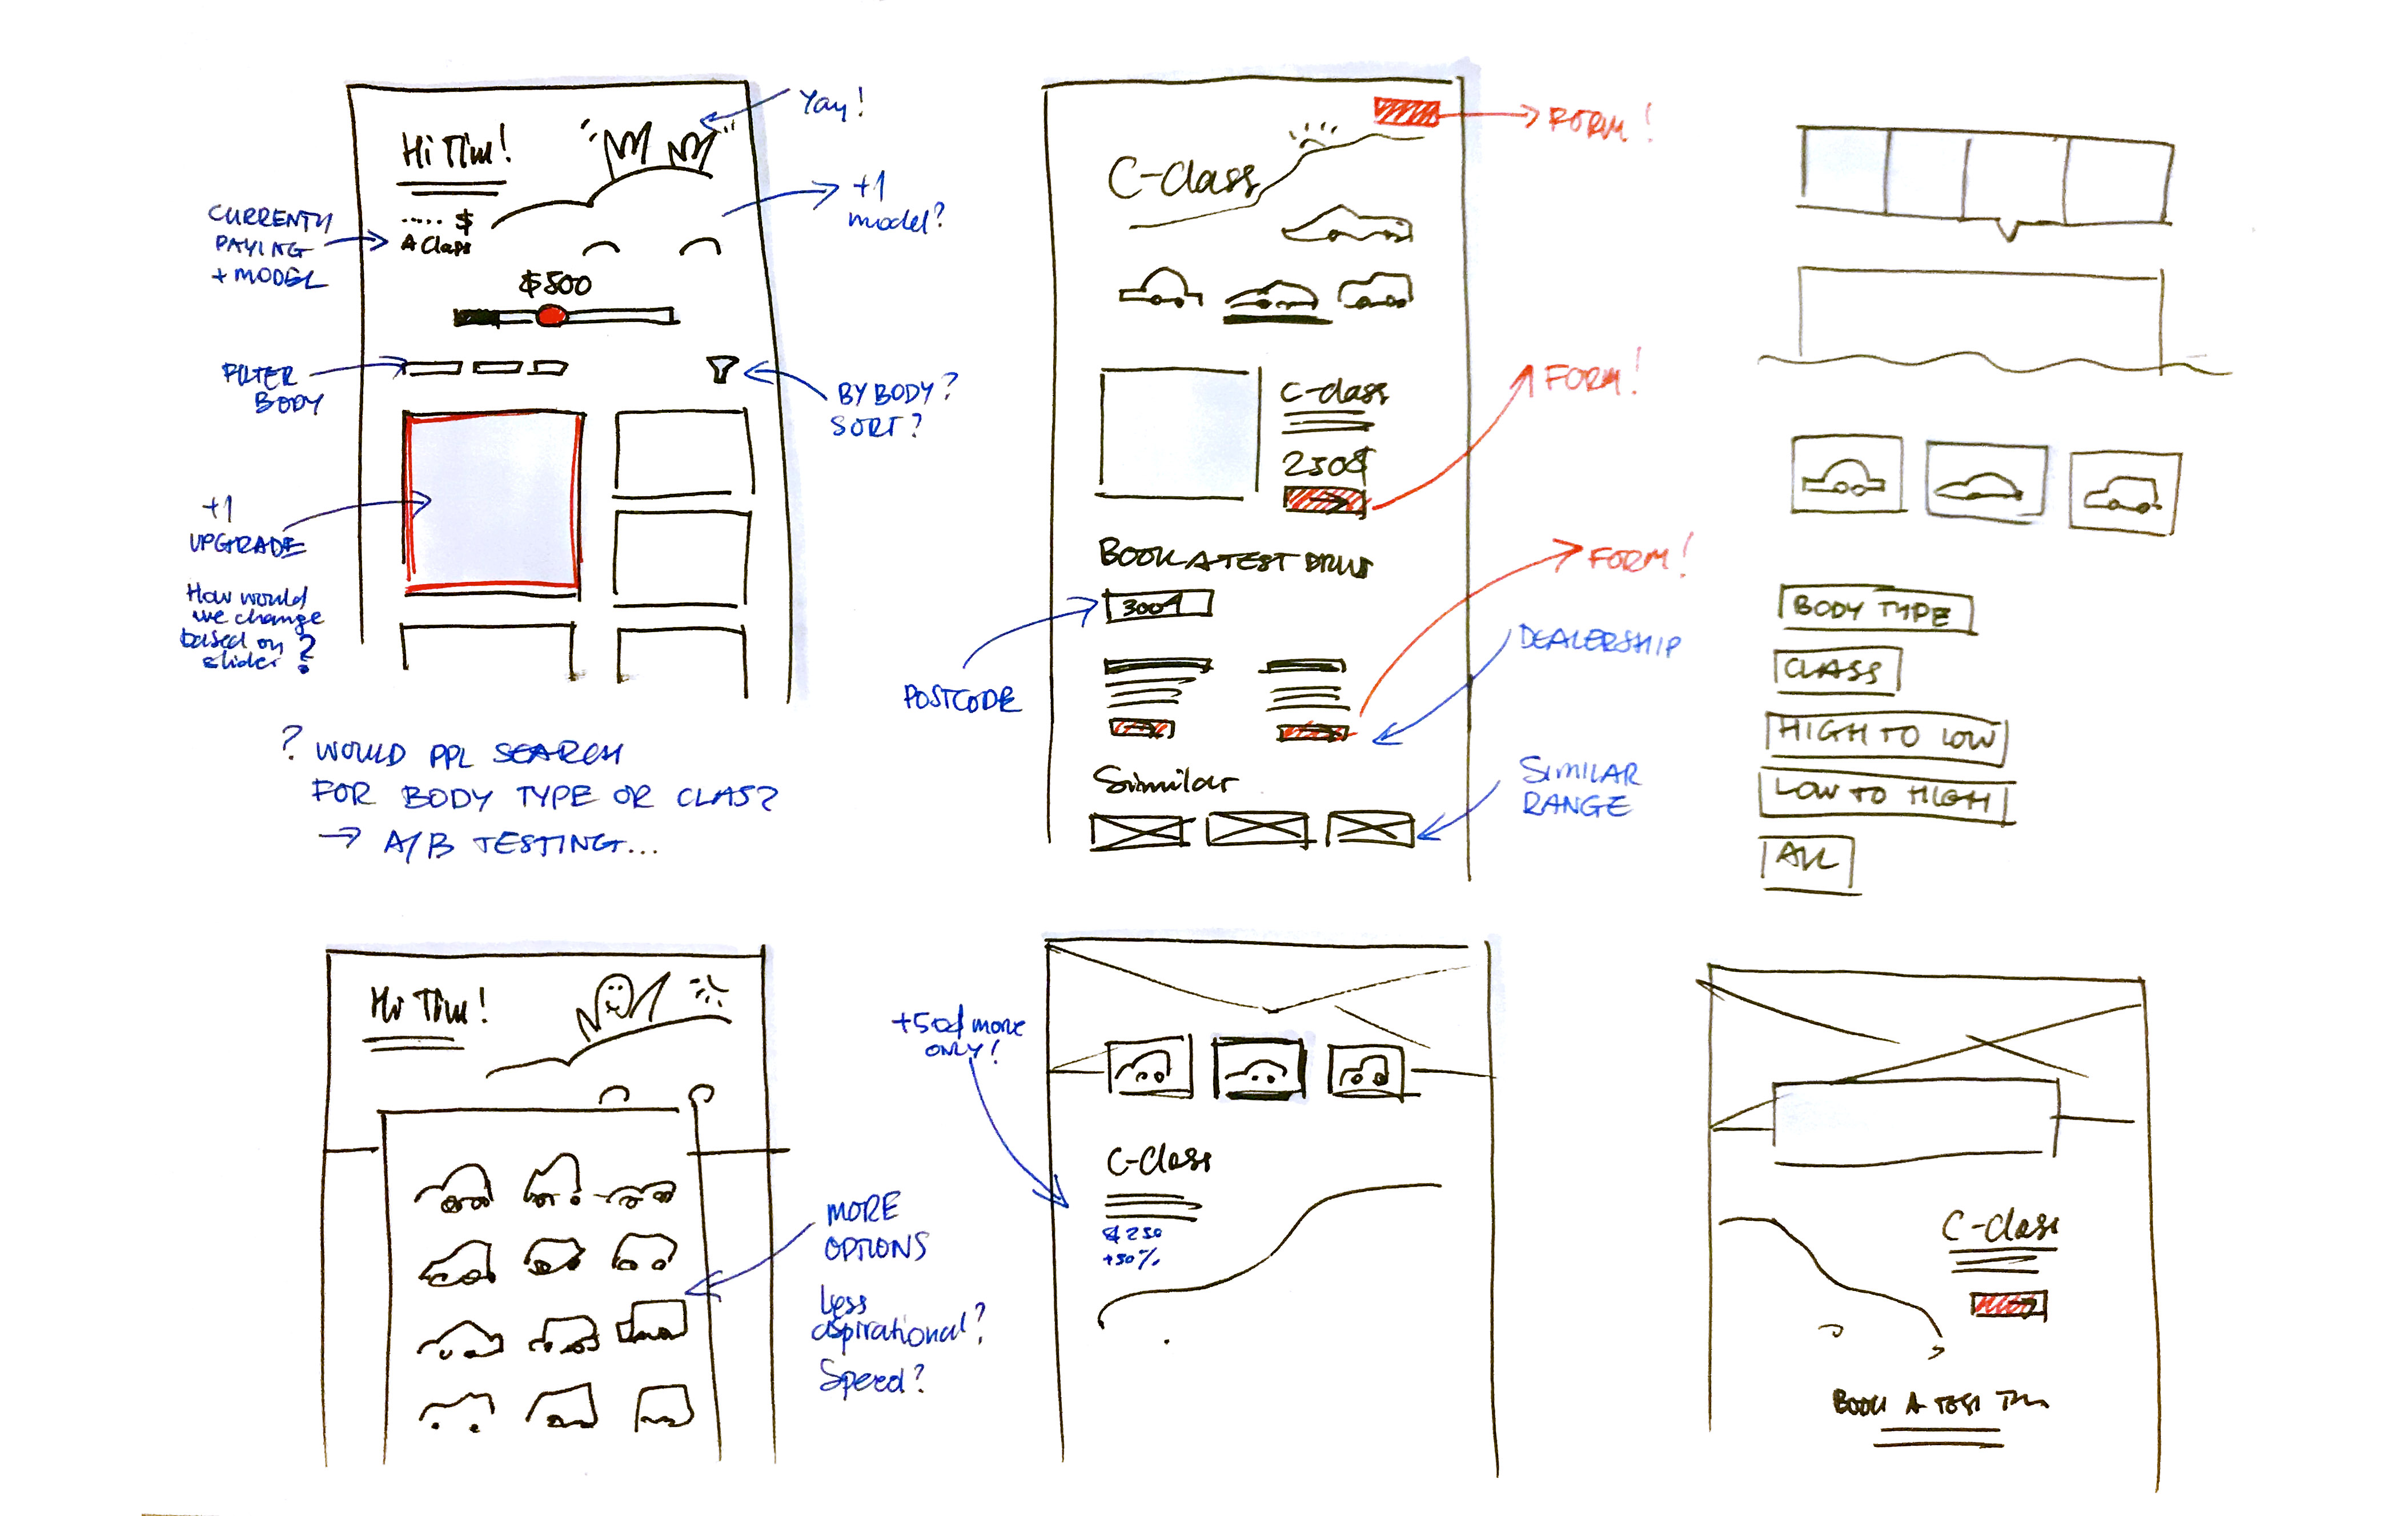 Hi Tim!
Yay!
+1
model?
CURRENTLY
PAYING
+ MODEL
..... $
A Class
$500
FILTER
BODY
BY BODY?
SORT?
+1
UPGRADE
How would
we change
based on
slider?
? WOULD PPL SEARCH
FOR BODY TYPE OR CLASS?
→ A/B TESTING...
FORM!
C-Class
C-class
250$
FORM!
BOOK A TEST DRIVE
3004
POSTCODE
FORM!
DEALERSHIP
Similar
SIMILAR
RANGE
BODY TYPE
CLASS
HIGH TO LOW
LOW TO HIGH
ALL
Hi Tim!
MORE
OPTIONS
Less
aspirational?
Speed?
+50$ more
ONLY!
C-Class
$250
+50%
C-Class
BOOK A TEST